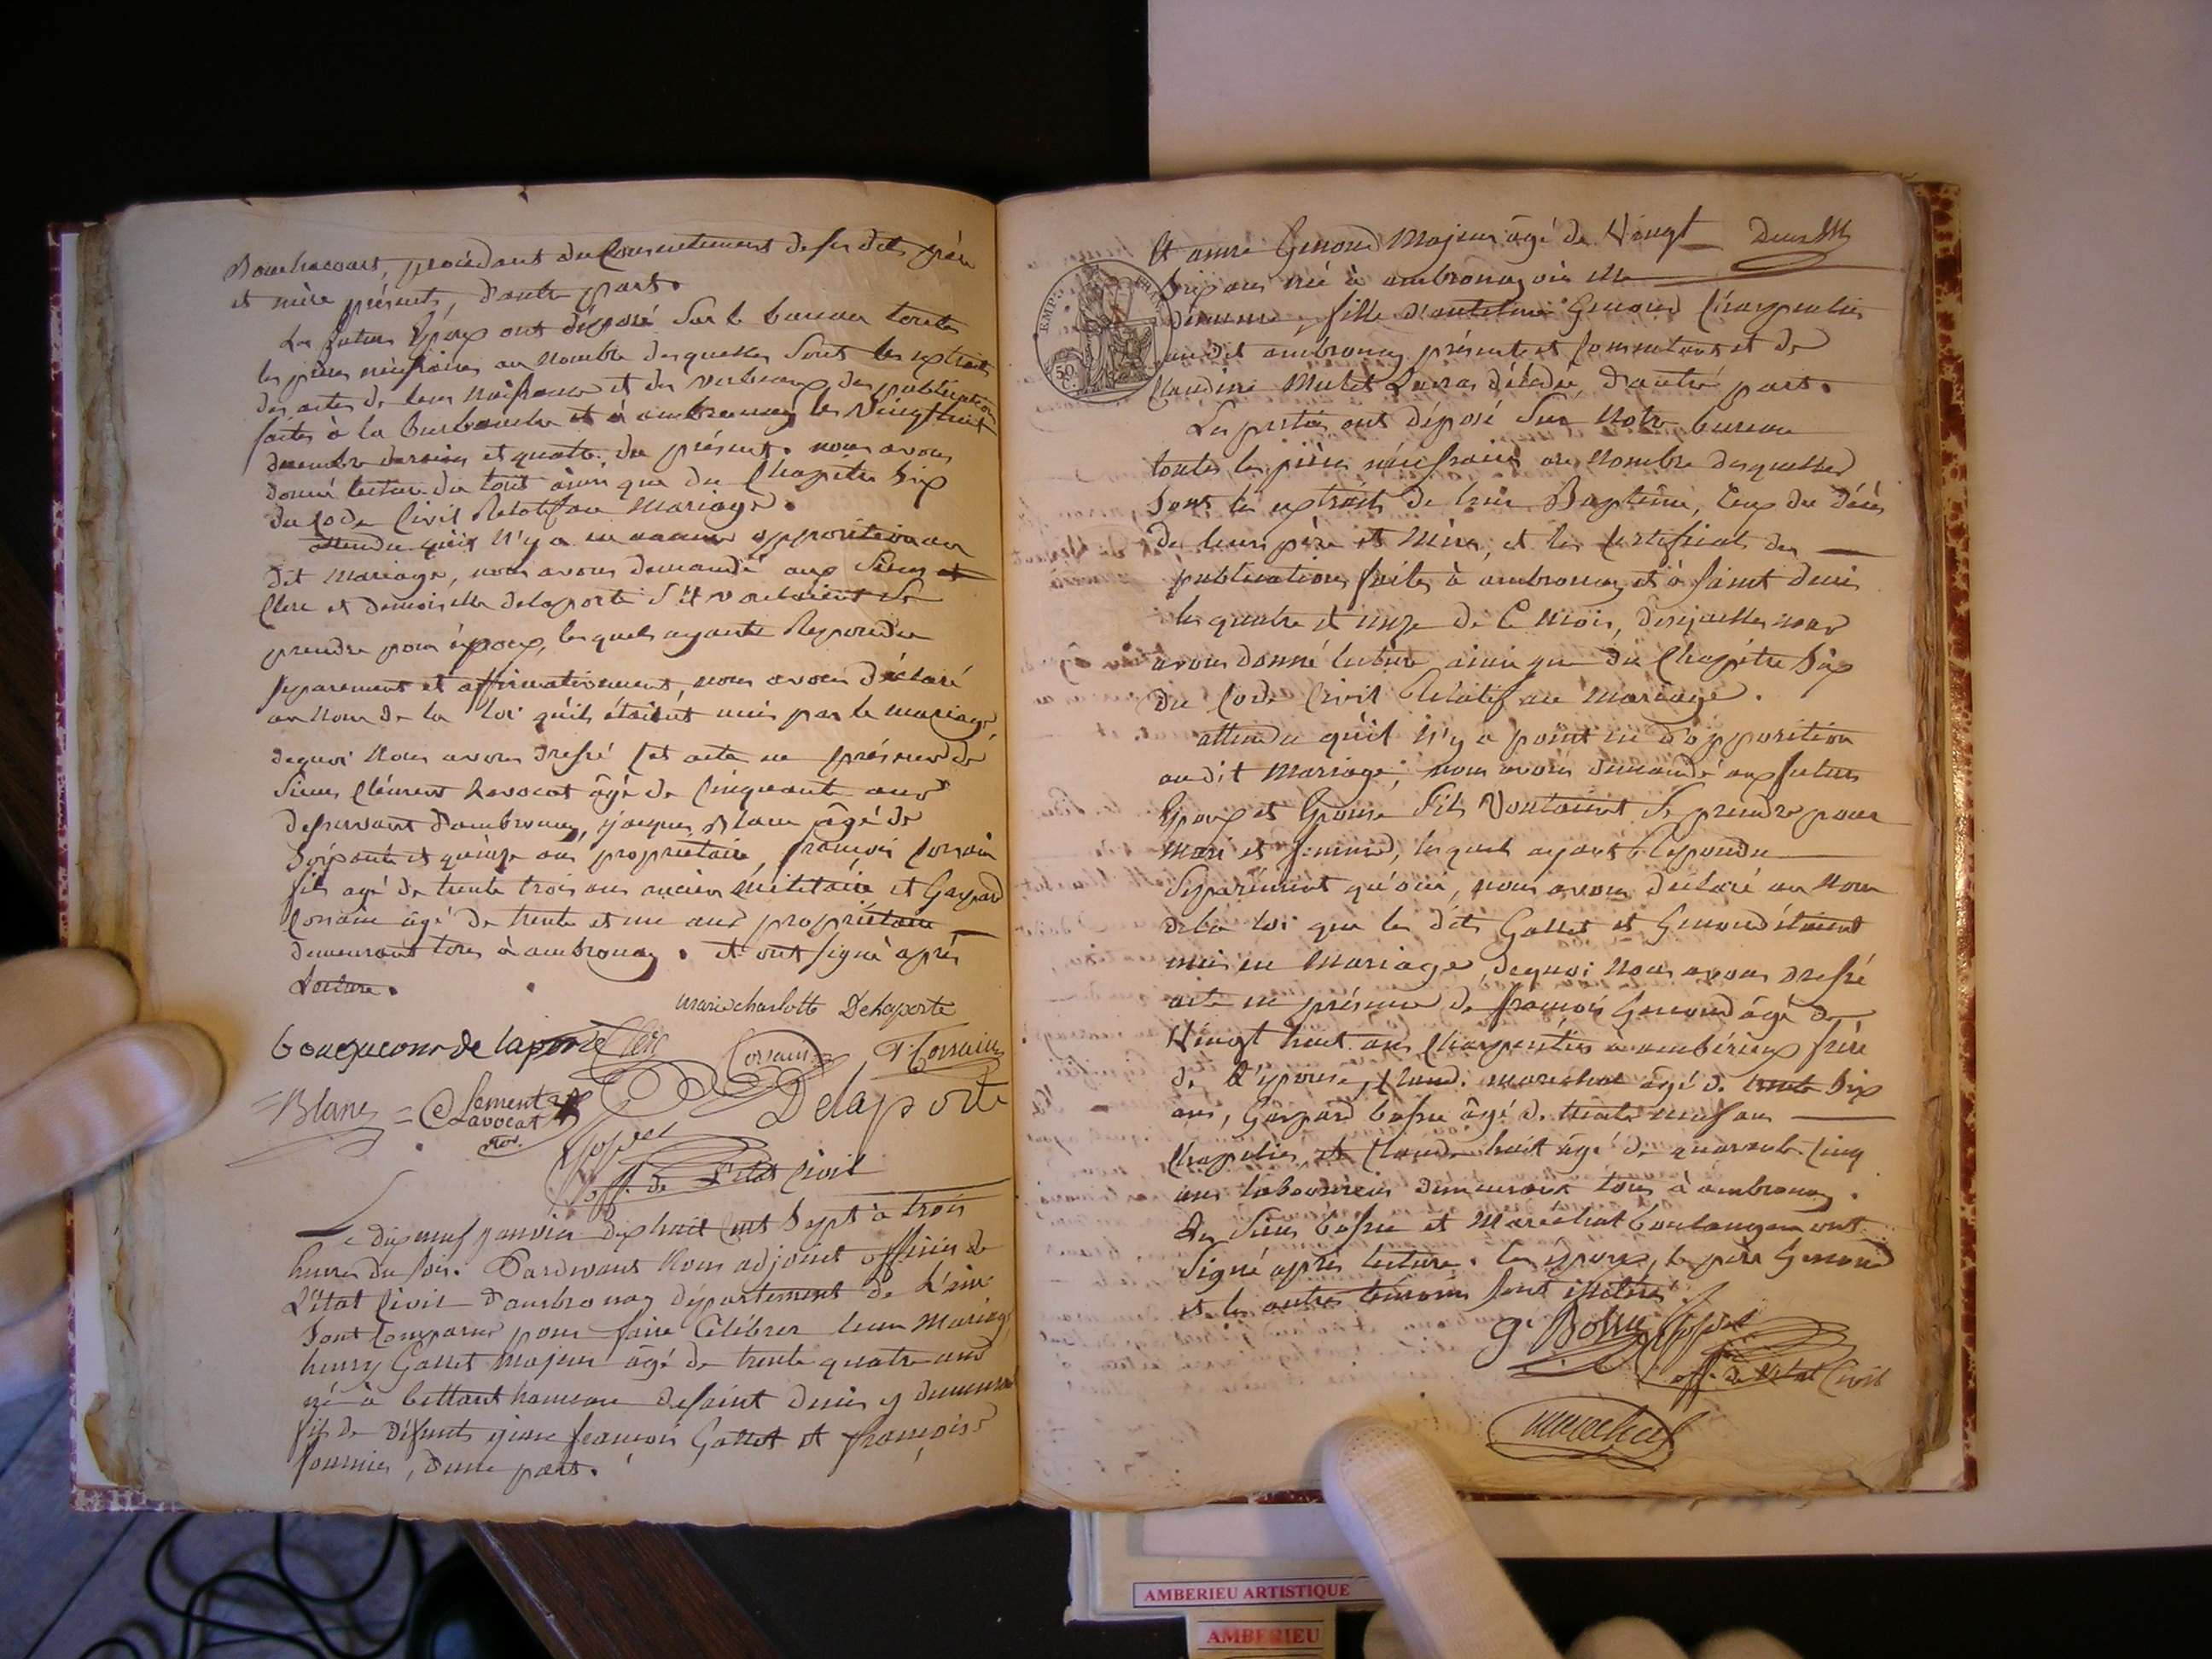 Bouchacourt, procédant du Consentement de ses dits père
et mère présents, d'autre part.
Les futurs Epoux ont déposé Sur le bureau toutes
les pièces nécessaires au nombre desquelles Sont les extraits
des actes de leur naissance et des verbeaux des publications
faites à la Burbanche et à ambronay les Vingthuit
décembre dernier et quatre du présent. nous avons
donné lecture du tout ainsi que du Chapitre Six
du Code Civil Relatif au Mariage.
attendu qu'il N'y a eu aucune opposition au
dit Mariage, nous avons demandé aux Sieur
Clerc et demoiselle delaporte S'il vouloient Se
prendre pour époux, lesquels ayants Repondu
separement et affirmativement, nous avons déclaré
au Nom de la loi qu'ils étoient unis par le mariage
dequoi Nous avons dressé Cet acte en présence de
Sieurs Clément Lavocat âgé de Cinquante ans
desservant d'ambronay, jacques Blanc âgé de
Soixante et quinze ans propriétaire, françois Corrain
fils agé de trente trois ans ancien Militaire et Gaspard
Corrain âgé de trente et un ans propriétaire
demeurant tous à ambronay. et ont signé après
Lecture.
Marie charlotte Delaporte
bouchacour de laporte Clerc Corrain F. Corrain
=Blanc= Clement Lavocat Delaporte
off. de l'état Civil
Le dix neuf janvier dix huit Cent Sept à trois
heures du soir. Pardevant Nous adjoint officier de
L'état Civil d'ambronay département de L'ain
Sont Comparus pour faire Célébrer leur Mariage
henry Gallet Majeur âgé de trente quatre ans
né à bettant hameau de saint denis y demeurant
fils de défunts pierre françois Gallet et françoise
fournier, d'une part.
Et anne Genoud Majeure âgé de Vingt
Six ans née à ambronay où elle
demeure, fille d'antelme Genoud Charpentier
au dit ambronay présente et Consentant et de
Claudine Mulet décédée, d'autre part.
Les parties ont déposé Sur Notre bureau
toutes les pièces nécessaires au Nombre desquelles
Sont les extraits de leur Baptême, Ceux du décès
de leurs père et Mère, et les Certificats des
publications faites à ambronay et à saint denis
les quatre et onze de Ce Mois, desquelles nous
avons donné lecture ainsi que du Chapitre Six
du Code Civil Relatif au Mariage.
attendu qu'il N'y a point eu d'opposition
audit Mariage, nous avons demandé aux futurs
Epoux et Epouse S'ils Vouloient Se prendre pour
Mari et femme, lesquels ayant Repondu
Séparément qu'oui, nous avons déclaré au Nom
de la loi que les dits Gallet et Genoud étoient
unis en Mariage, dequoi Nous avons dressé
acte en présence de françois Genoud âgé de
Vingt huit ans Charpentier à ambérieux frère
de L'épouse, Claude Marechal âgé de trente Six
ans, Gaspard bossu âgé de trente neuf ans
Chapelier, et Claude huit âgé de quarante Cinq
ans laboureur demeurant tous à ambronay.
Les Sieurs bossu et Marechal boulanger ont
Signé après lecture. les époux, le père Genoud
et les autres témoins sont illetérés.
g. Bossu
off. de l'état Civil
marechal
EMP. FRAN.
50 C.
AMBERIEU ARTISTIQUE
AMBERIEU